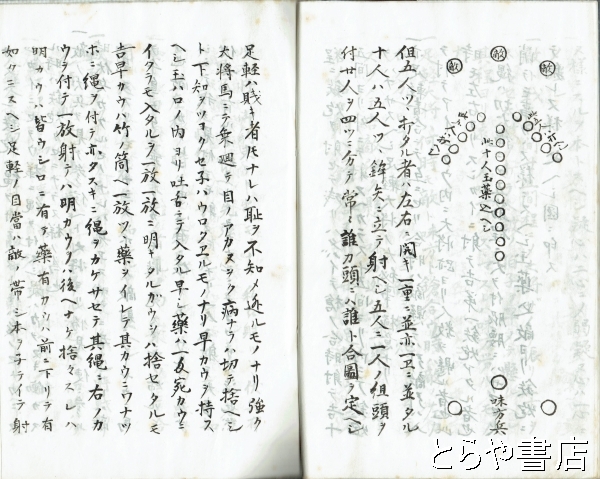 敵
敵
敵
此十人玉薬込ヘシ
味方兵
但五人ツヽホタル者ハ左右ニ開キ一重ニ並亦一
十人ハ五人ツヽ鉾矢ニ立テ射ヘシ五人ニ一人ノ組頭ヲ
付廿人ヲ四ツニ分テ常ニ誰刀頭ニハ誰ト合圖ヲ定ヘシ
足軽ハ賤キ者ナレハ恥ヲ不知メ迯ルモノナリ強ク
大将馬ニテ乗廻テ目ノアカヌツク病ナラハ切テ捨ヘシ
ト下知ヲツヨクセ子ハウロタユルモノナリ早カウヲ持ス
ヘシ玉ハロノ内ヨリ吐出シテ入タル早シ薬ハ一反宛カウニ
イタラモ入タルヲ一放一放ニ明キタルガウシハ捨セタルモ
吉早カウハ竹ノ筒ヘ一放ツヽ薬ヲイレテ其カウニワナツ
ホニ縄ヲ付テ亦タスキニ縄ヲカケサセテ其縄ニ右ノカ
ウヲ付テ一放射テハ明カウヲハ後ヘナケ捨々スレハ
明カウハ皆ウシロニ有ヲ薬有カウハ前ニ下リテ有
如クニスヘシ足軽ノ目當ハ敵ノ帯シ本ヲ子ライテ射
とらや書店